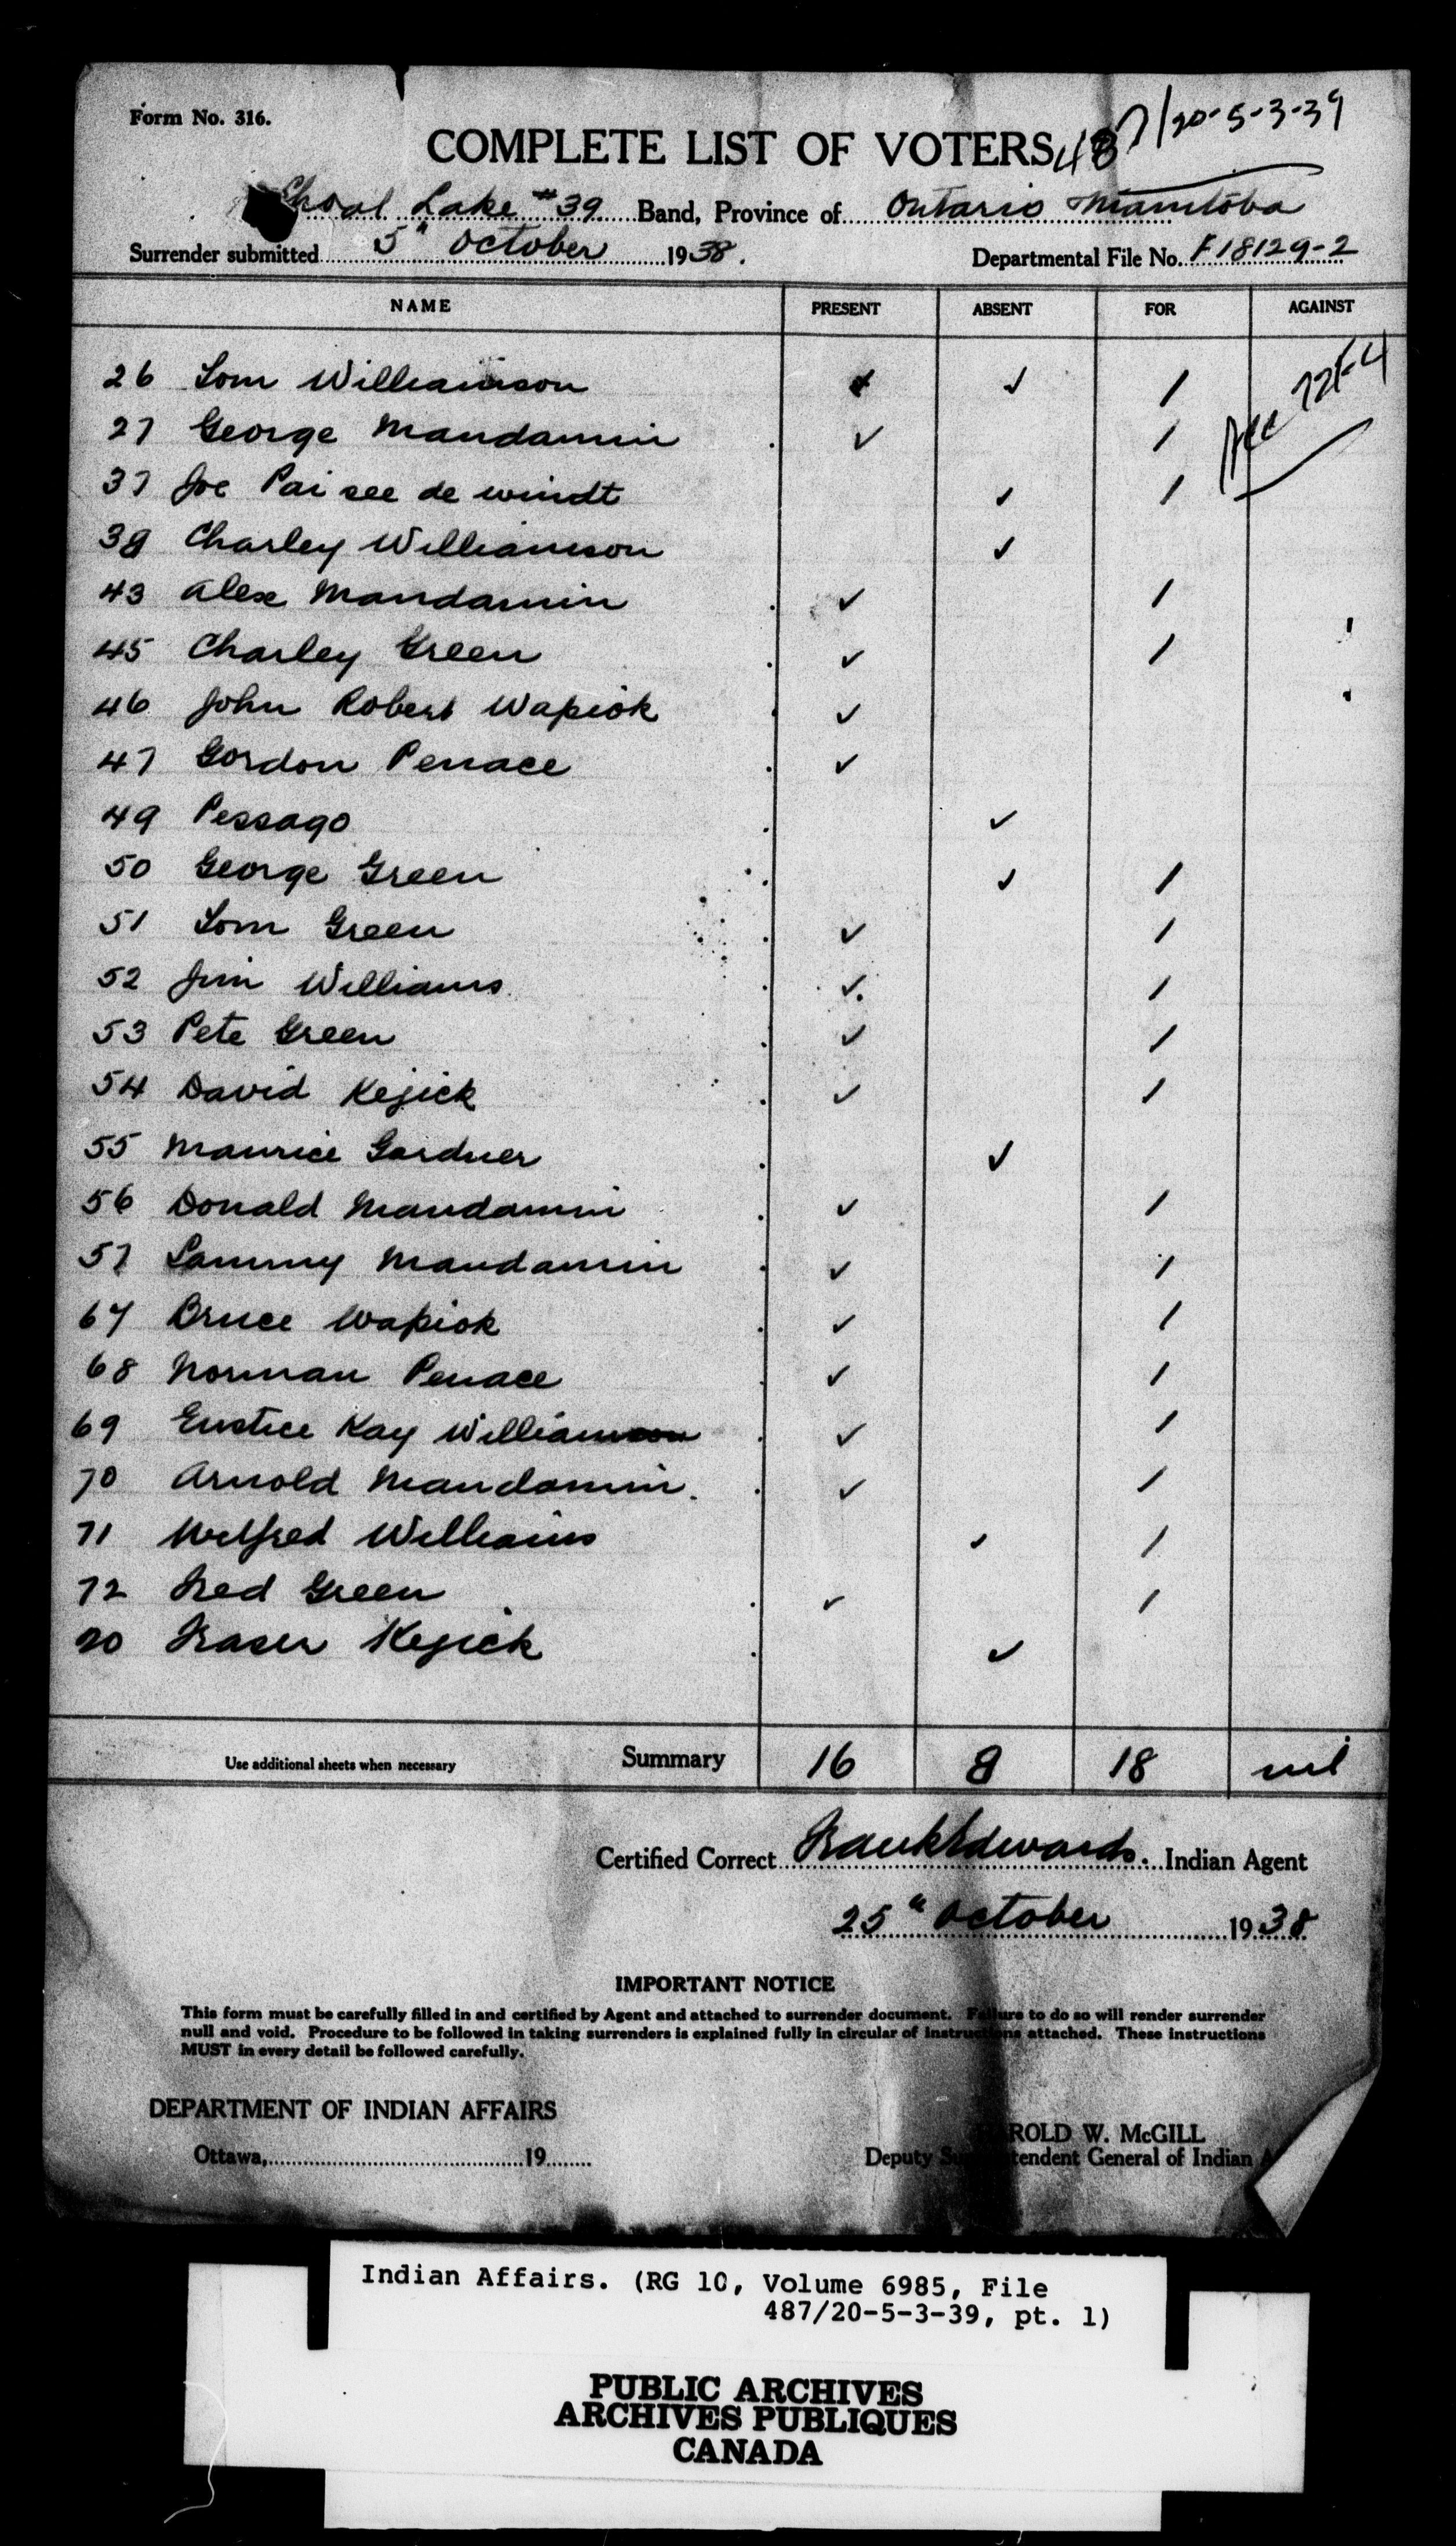 Form No. 316.
487/20-5-3-39
COMPLETE LIST OF VOTERS
Shoal Lake #39 Band, Province of Ontario Manitoba
Surrender submitted 5th October 1938.
Departmental File No. F18129-2
NAME PRESENT ABSENT FOR AGAINST
26 Tom Williamson ✓ ✓ 1
27 George Mandamin ✓ 1
37 Joe Paisee de windt ✓ 1
38 Charley Williamson ✓
43 Alex Mandamin ✓ 1
45 Charley Green ✓ 1
46 John Robert Wapiok ✓
47 Gordon Penace ✓
49 Pessago ✓
50 George Green ✓ 1
51 Tom Green ✓ 1
52 Jim Williams ✓ 1
53 Pete Green ✓ 1
54 David Kejick ✓ 1
55 Maurice Gardner ✓
56 Donald Mandamin ✓ 1
57 Sammy Mandamin ✓ 1
67 Bruce Wapiok ✓ 1
68 Norman Penace ✓ 1
69 Eustice Kay Williamson ✓ 1
70 Arnold Mandamin. ✓ 1
71 Wilfred Williams ✓ 1
72 Fred Green ✓ 1
20 Fraser Kejick ✓
Use additional sheets when necessary Summary 16 8 18 nil
Certified Correct Frank Edwards. Indian Agent
25th October 1938
IMPORTANT NOTICE
This form must be carefully filled in and certified by Agent and attached to surrender document. Failure to do so will render surrender
null and void. Procedure to be followed in taking surrenders is explained fully in circular of instructions attached. These instructions
MUST in every detail be followed carefully.
DEPARTMENT OF INDIAN AFFAIRS
Ottawa, 19
HAROLD W. McGILL
Deputy Superintendent General of Indian
Indian Affairs. (RG 10, Volume 6985, File
487/20-5-3-39, pt. 1)
PUBLIC ARCHIVES
ARCHIVES PUBLIQUES
CANADA